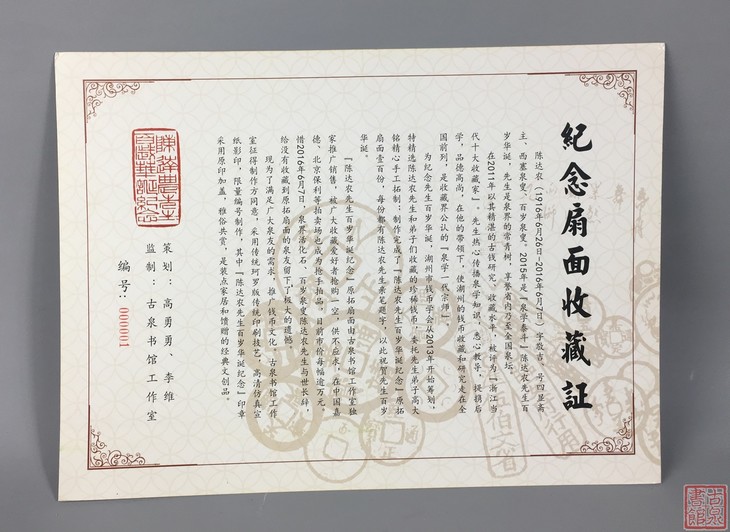 紀念扇面收藏証
陈达农(1916年6月26日-2016年6月7日)字敬吉,号四显斋
主、西塞泉叟、百岁泉叟。2015年是『泉学泰斗』陈达农先生百
岁华诞,先生是泉界的常青树,享誉省内乃至全国泉坛。
在2011年以其精湛的古钱研究、收藏水平,被评为『浙江当
代十大收藏家』。先生热心传播泉学知识,悉心教导,提携后
学,品德高尚,在他的带领下,使湖州的钱币收藏和研究走在全
国前列,是收藏界公认的『泉学一代宗师』。
为纪念先生百岁华诞,湖州市钱币学会从2013年开始筹划,
特精选陈达农先生和弟子们收藏的珍稀钱币,委托先生弟子高大
铭精心手工拓制;制作完成了『陈达农先生百岁华诞纪念』原拓
扇面壹百份,每份都有陈达农先生亲笔题字,以此祝贺先生百岁
华诞。
『陈达农先生百岁华诞纪念』原拓扇面由古泉书馆工作室独
家推广销售,被广大收藏爱好者抢购一空,供不应求,在中国嘉
德、北京保利等拍卖场也成为抢手拍品,目前市价每幅逾万元。
惜2016年6月7日,泉界活化石、百岁泉叟陈达农先生与世长辞,
给没有收藏到原拓扇面的泉友留下了极大的遗憾。
现为了满足广大泉友的需求,推广钱币文化,古泉书馆工作
室征得制作方同意,采用传统珂罗版传统印刷技艺,高清仿真宣
纸影印,限量编号制作,其中『陈达农先生百岁华诞纪念』印章
采用原印加盖,雅俗共赏,是装点家居和馈赠的经典文创品。
策划:高勇勇、李维
监制:古泉书馆工作室
编号:000001
陈达农先生
百岁华诞纪念
古泉
書館